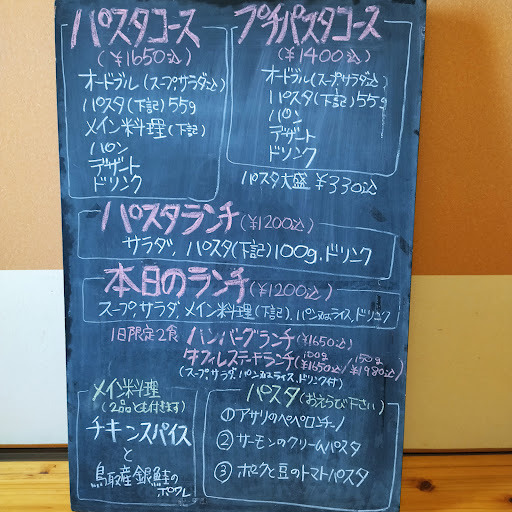 パスタコース
(¥1650込)
オードブル(スープ,サラダ込)
パスタ(下記)55g
メイン料理(下記)
パン
デザート
ドリンク
プチパスタコース
(¥1400込)
オードブル(スープ,サラダ込)
パスタ(下記)55g
パン
デザート
ドリンク
パスタ大盛 ¥330込
パスタランチ(¥1200込)
サラダ, パスタ(下記)100g.ドリンク
本日のランチ(¥1200込)
スープ,サラダ,メイン料理(下記),パン又はライス,ドリンク
1日限定2食 ハンバーグランチ(¥1650込)
牛フィレステーキランチ(100g ¥1650込/150g ¥1980込)
(スープ,サラダ,パン又はライス,ドリンク付)
メイン料理
(2品とも付きます)
チキンスパイス
と
鳥取産銀鮭の
ポワレ
パスタ(おえらび下さい)
①アサリのペペロンチーノ
②サーモンのクリームパスタ
③ポークと豆のトマトパスタ